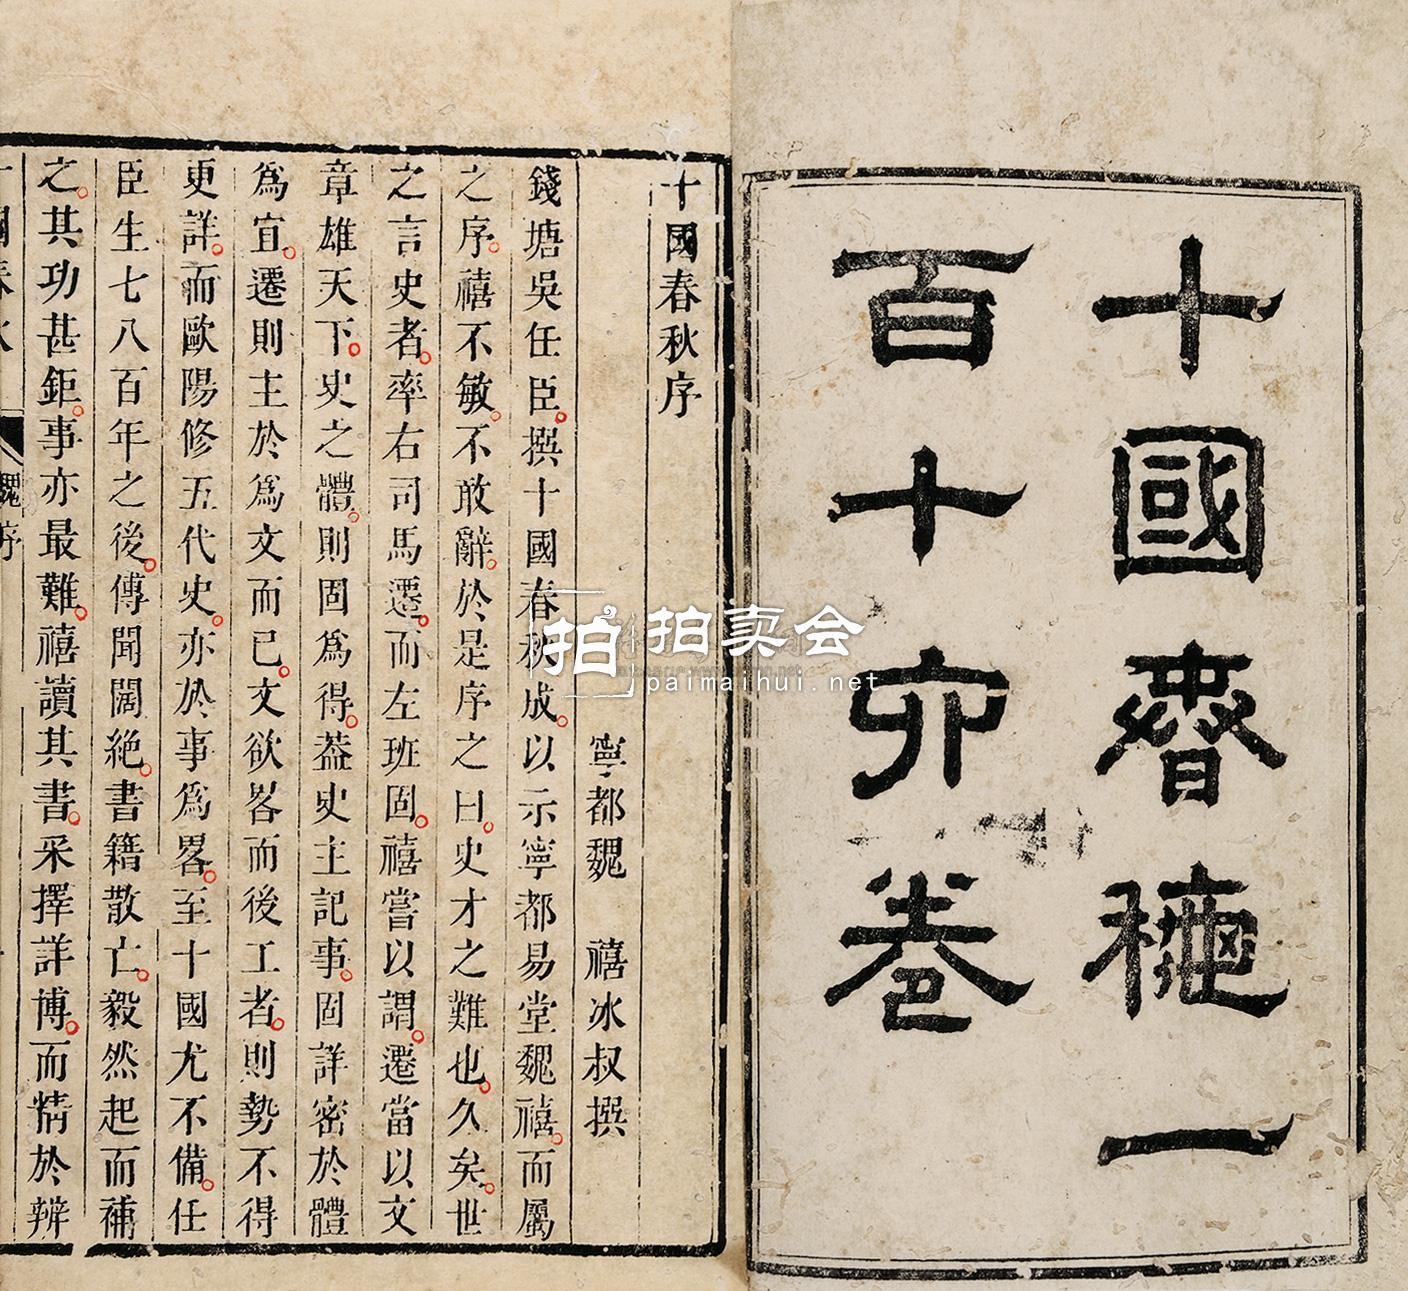 十國春穐一
百十六卷
十國春秋序
寧都魏 禧冰叔撰
錢塘吳任臣撰十國春秋成以示寧都易堂魏禧而屬
之序禧不敏不敢辭於是序之曰史才之難也久矣世
之言史者率右司馬遷而左班固禧嘗以謂遷當以文
章雄天下史之體則固爲得葢史主記事固詳密於體
爲宜遷則主於爲文而已文欲畧而後工者則勢不得
更詳而歐陽修五代史亦於事爲畧至十國尤不備任
臣生七八百年之後傳聞闊絶書籍散亡毅然起而補
之其功甚鉅事亦最難禧讀其書采擇詳博而精於辨
十國春秋
魏序
拍 拍卖会
paimaihui.net